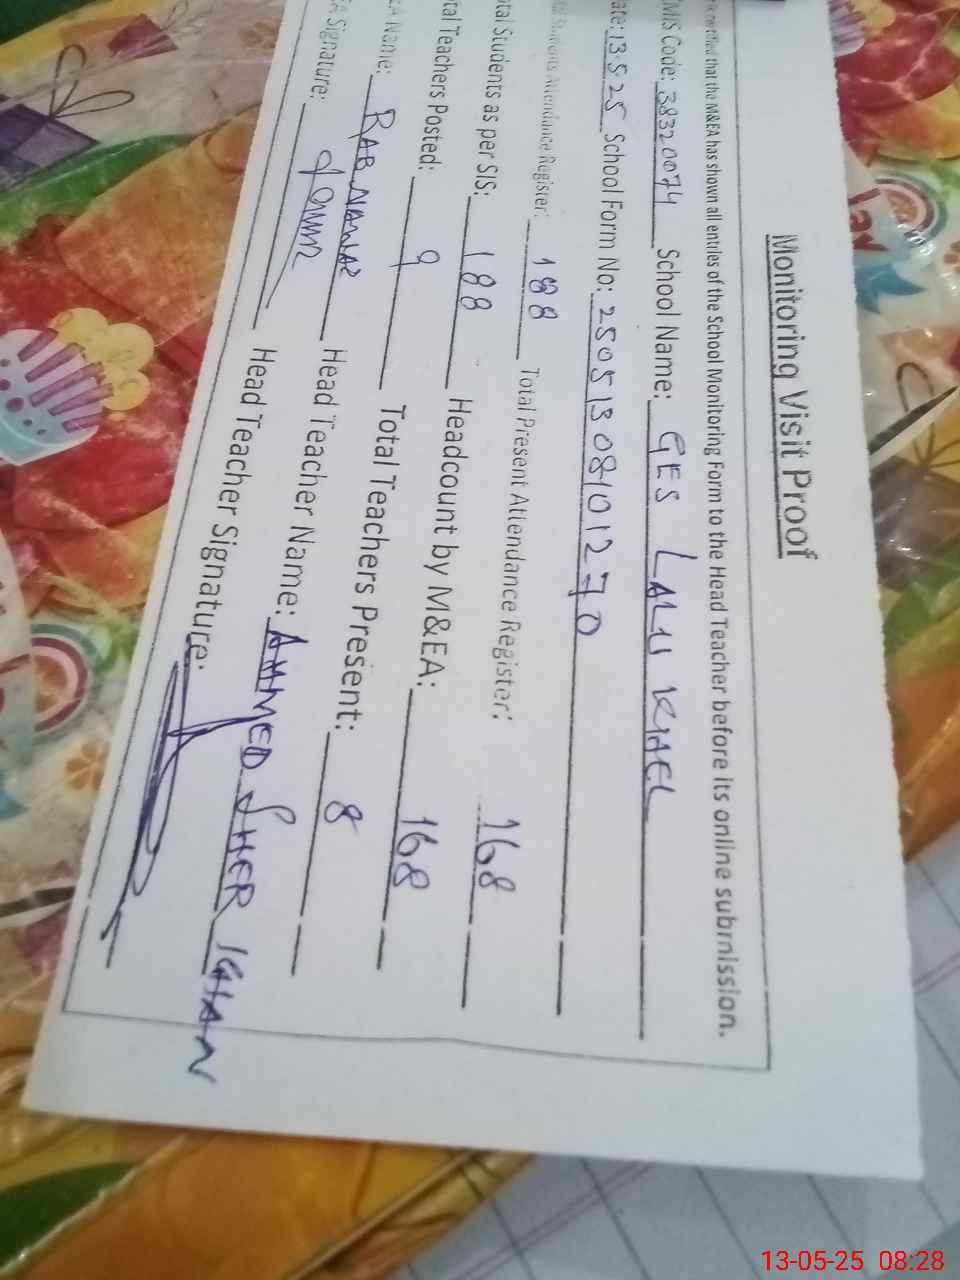 Monitoring Visit Proof
that the M&EA has shown all entries of the School Monitoring Form to the Head Teacher before its online submission.
MIS Code: 38320074 School Name: GES LALU KHEL
ate: 13.5.25 School Form No: 25051308101270
tal Students Attendance Register: 188 Total Present Attendance Register: 168
otal Students as per SIS: 188 Headcount by M&EA: 168
tal Teachers Posted: 9 Total Teachers Present: 8
EA Name: RAB NAWAZ Head Teacher Name: AHMED SHER KHAN
EA Signature: Head Teacher Signature:
13-05-25 08:28